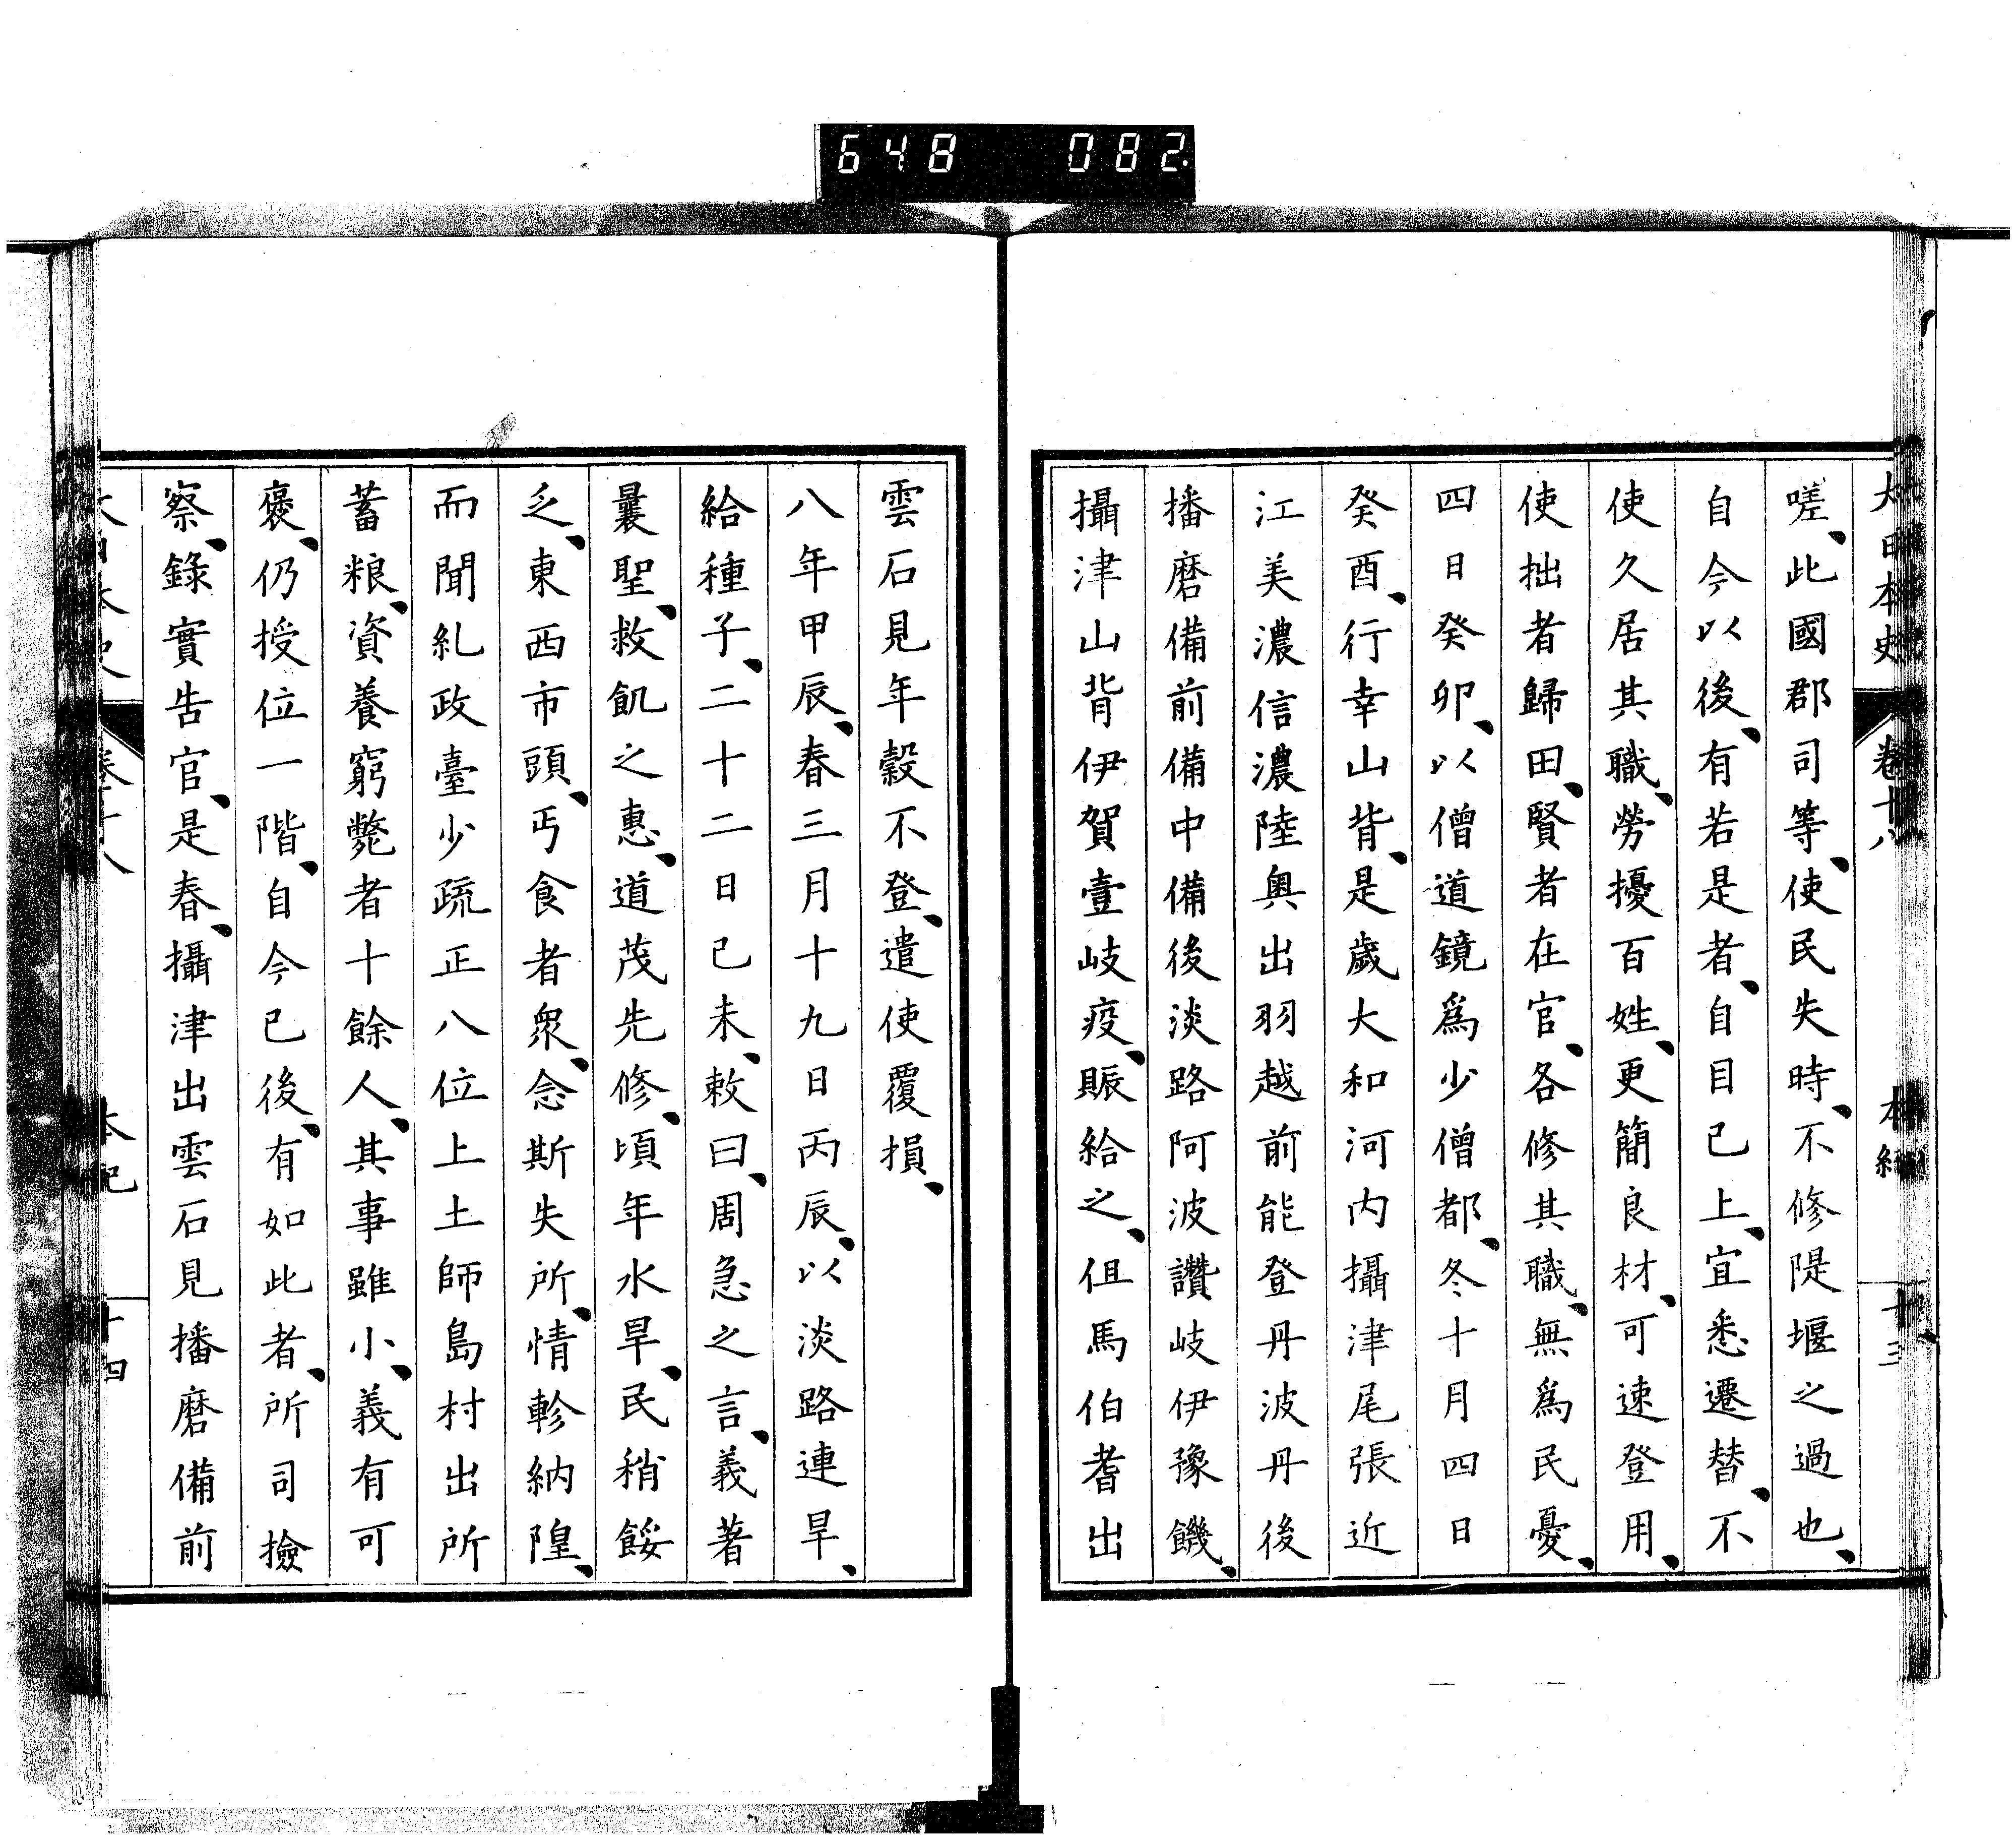 648 082
大日本史 卷十八 本紀 十三
嗟、此國郡司等、使民失時、不修隄堰之過也、
自今以後、有若是者、自目己上、宜悉遷替、不
使久居其職、勞擾百姓、更簡良材、可速登用、
使拙者歸田、賢者在官、各修其職、無爲民憂、
四日癸卯、以僧道鏡爲少僧都、冬十月四日
癸酉、行幸山背、是歲大和河内攝津尾張近
江美濃信濃陸奥出羽越前能登丹波丹後
播磨備前備中備後淡路阿波讚岐伊豫饑、
攝津山背伊賀壹岐疫、賑給之、但馬伯耆出
雲石見年穀不登、遣使覆損、
八年甲辰、春三月十九日丙辰、以淡路連旱、
給種子、二十二日己未、敕曰、周急之言、義著
曩聖、救飢之惠、道茂先修、頃年水旱、民稍餒
乏、東西市頭、丐食者衆、念斯失所、情軫納隍、
而聞糺政臺少疏正八位上土師島村出所
蓄粮、資養窮斃者十餘人、其事雖小、義有可
褒、仍授位一階、自今已後、有如此者、所司撿
察、錄實告官、是春、攝津出雲石見播磨備前
大日本史 卷十八 本紀 十四